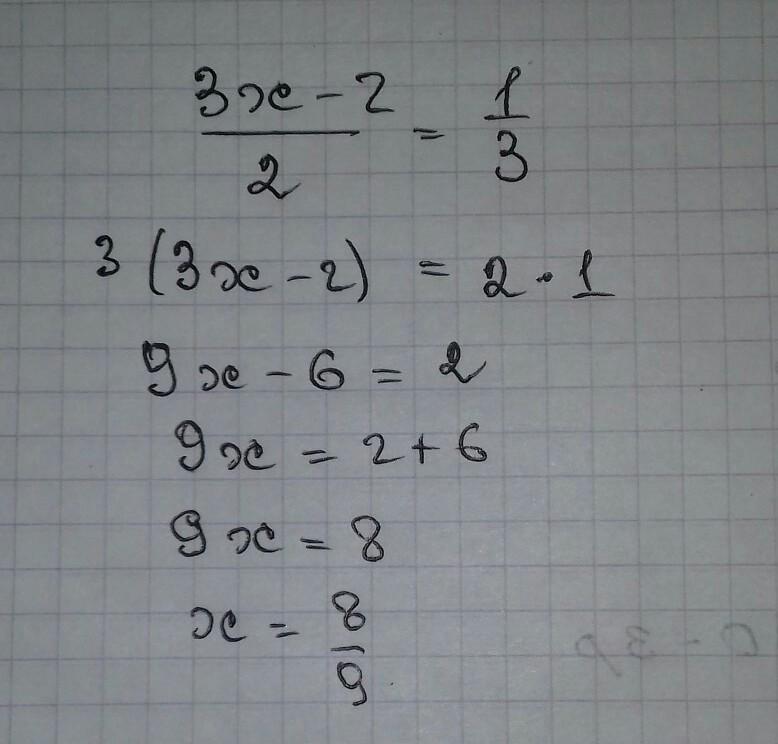 (3x - 2)/2 = 1/3
3 (3x - 2) = 2 · 1
9x - 6 = 2
9x = 2 + 6
9x = 8
x = 8/9